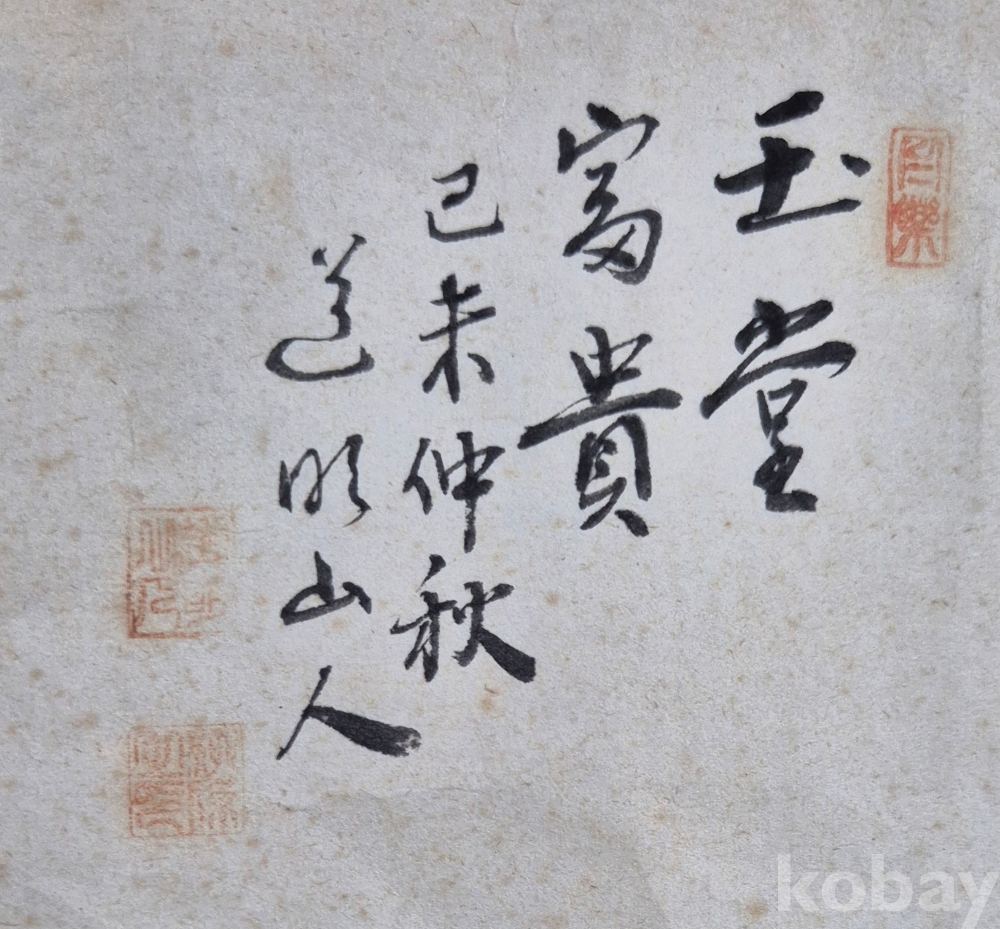 玉堂
富貴
己未仲秋
道明山人
kobay